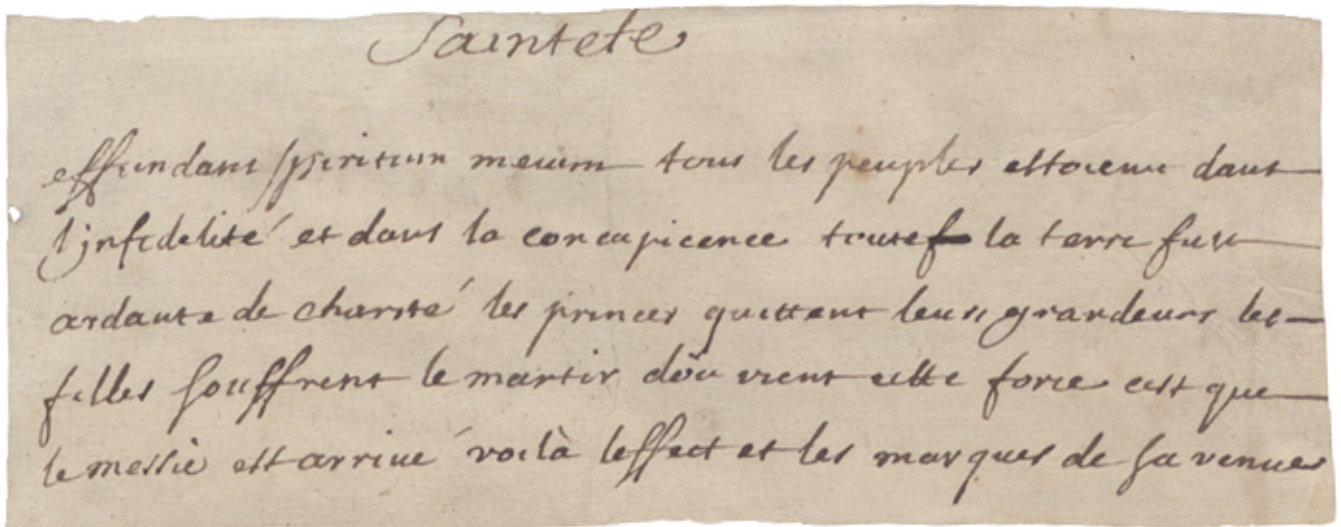 Saintete
effundam spiritum meum tous les peuples estoient dans
l'jnfidelité et dans la concupicence toute la terre fust
ardante de charité les princes quittent leurs grandeurs les
filles souffrent le martir d'òu vient cette force cest que
le messie est arriué voilà leffect et les marques de sa venues